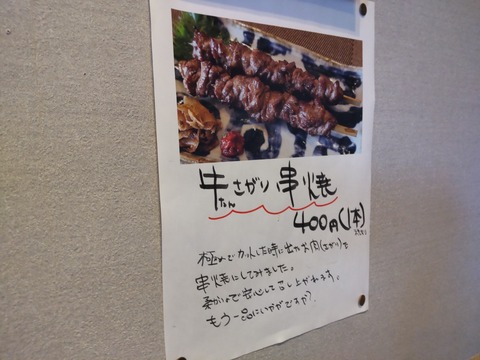 牛たんさがり串焼
400円(1本)
極めでカットした時に出たお肉(さがり)を
串焼にしてみました。
柔かいので安心して召し上がれます。
もう一品にいかがですか?